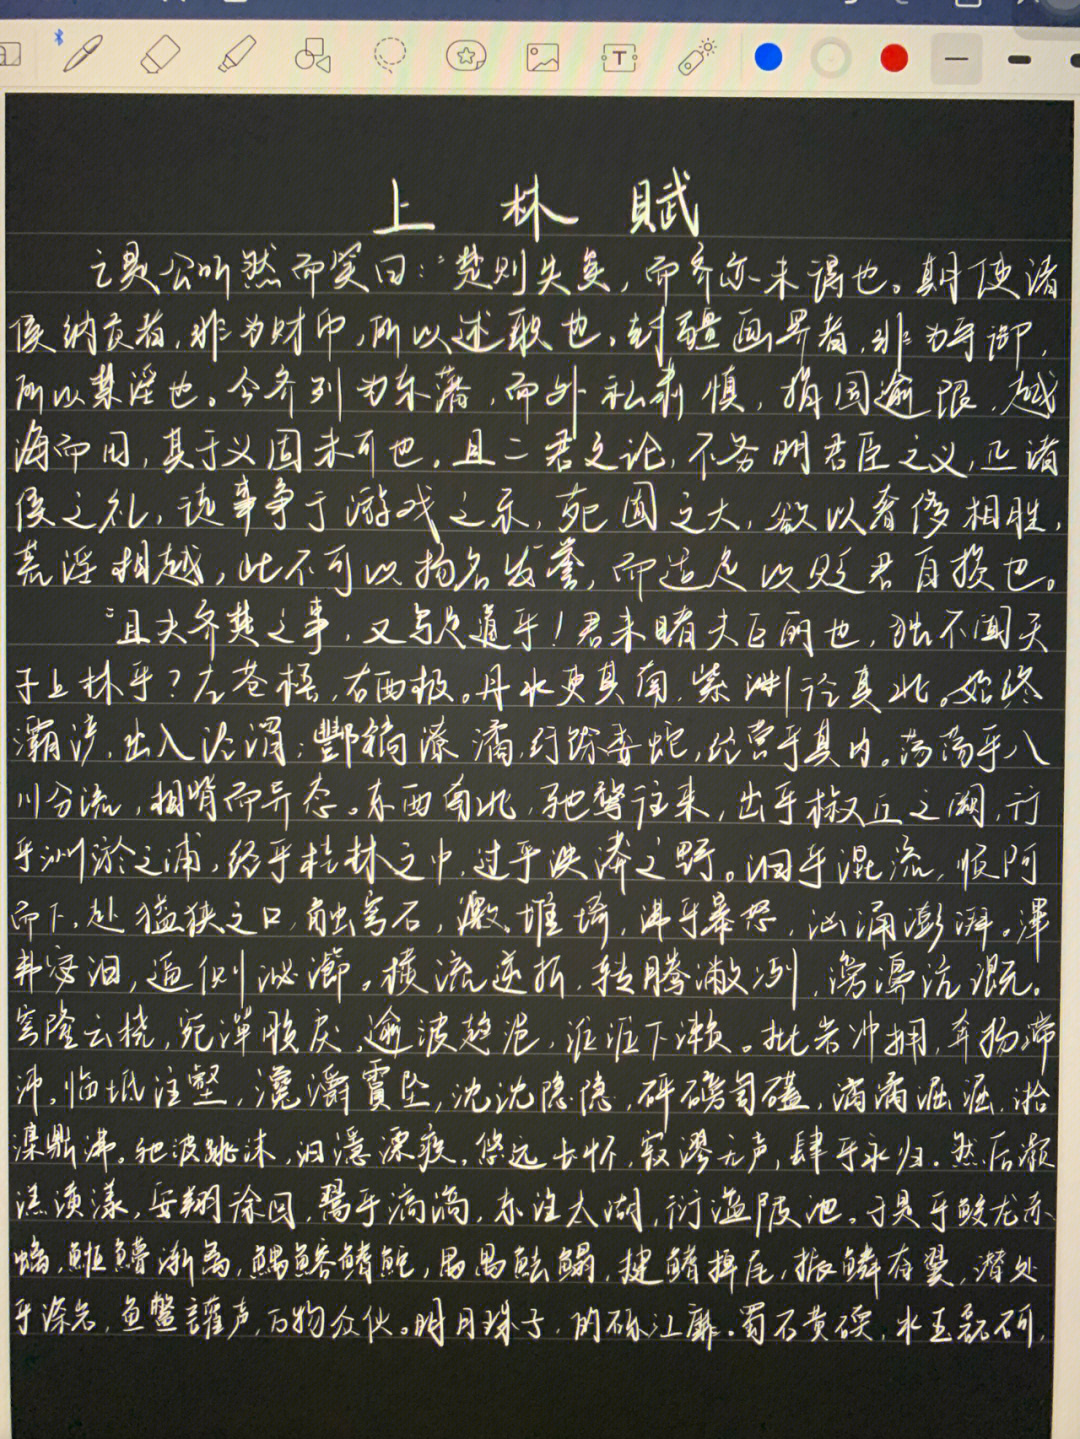 上林賦
亡是公听然而笑曰：“楚则失矣，而齐亦未谓得也。夫使诸
侯纳贡者，非为财币，所以述职也。封疆画界者，非为守御，
所以禁淫也。今齐列为东藩，而外私肃慎，捐国逾限，越
海而田，其于义固未可也。且二君之论，不务明君臣之义，正诸
侯之礼，徒事争于游戏之乐，苑囿之大，欲以奢侈相胜，
荒淫相越，此不可以扬名发誉，而适足以贬君自损也。
“且夫齐楚之事，又乌足道乎！君未睹夫巨丽也，独不闻天
子上林乎？左苍梧，右西极。丹水更其南，紫渊径其北。始终
灞浐，出入泾渭；酆镐潦潏，纡馀委蛇，经营乎其内。荡荡乎八
川分流，相背而异态。东西南北，驰骛往来，出乎椒丘之阙，行
乎洲淤之浦，经乎桂林之中，过乎泱漭之野。汩乎混流，顺阿
而下，赴隘狭之口，触穹石，激堆埼，沸乎暴怒，汹涌澎湃。滭
弗宓汩，逼侧泌瀄。横流逆折，转腾潎洌，滂濞沆溉。
穹隆云桡，宛潬胶戾，逾波趋浥，涖涖下濑。批岩冲拥，奔扬滞
沛。临坻注壑，瀺灂霣坠，沈沈隐隐，砰磅訇礚，潏潏淈淈，湁
潗鼎沸。驰波跳沫，汩㵒漂疾。悠远长怀，寂漻无声，肆乎永归。然后灏
溔潢漾，安翔徐回，翯乎滈滈，东注太湖，衍溢陂池。于是乎鲛龙赤
螭，䱭䲛渐离，鰅鰫鳍鮀，禺禺魼鳎，揵鳍掉尾，振鳞奋翼，潜处
乎深岩，鱼鳖讙声，万物众伙。明月珠子，的砾江靡。蜀石黄碝，水玉磊砢，